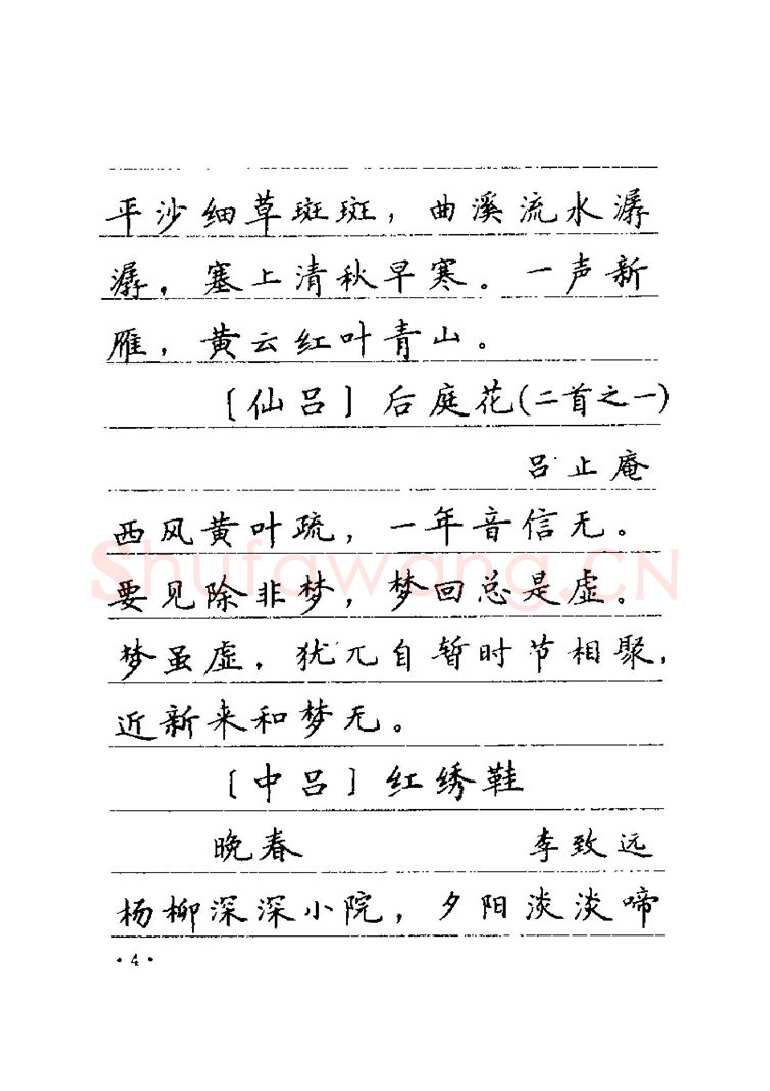 平沙细草斑斑，曲溪流水潺
潺，塞上清秋早寒。一声新
雁，黄云红叶青山。
［仙吕］后庭花(二首之一)
吕止庵
西风黄叶疏，一年音信无。
要见除非梦，梦回总是虚。
梦虽虚，犹兀自暂时节相聚，
近新来和梦无。
［中吕］红绣鞋
晚春 李致远
杨柳深深小院，夕阳淡淡啼
·4·
Shufawang.CN